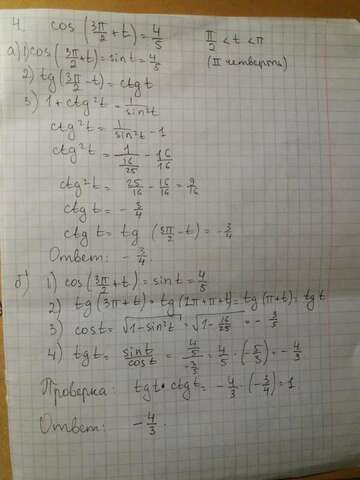 4. cos (3π/2 + t) = 4/5   π/2 < t < π
(II четверть)
а) 1) cos (3π/2 + t) = sin t = 4/5
2) tg (3π/2 - t) = ctg t
3) 1 + ctg²t = 1/sin²t
ctg²t = 1/sin²t - 1
ctg²t = 1/(16/25) - 16/16
ctg²t = 25/16 - 16/16 = 9/16
ctg t = - 3/4
ctg t = tg (3π/2 - t) = - 3/4
Ответ: - 3/4
б) 1) cos (3π/2 + t) = sin t = 4/5
2) tg (3π + t) = tg (2π + π + t) = tg (π + t) = tg t
3) cos t = √(1 - sin²t) = √(1 - 16/25) = - 3/5
4) tg t = sin t/cos t = (4/5)/(- 3/5) = 4/5 · (- 5/3) = - 4/3
Проверка: tg t · ctg t = - 4/3 · (- 3/4) = 1.
Ответ: - 4/3.